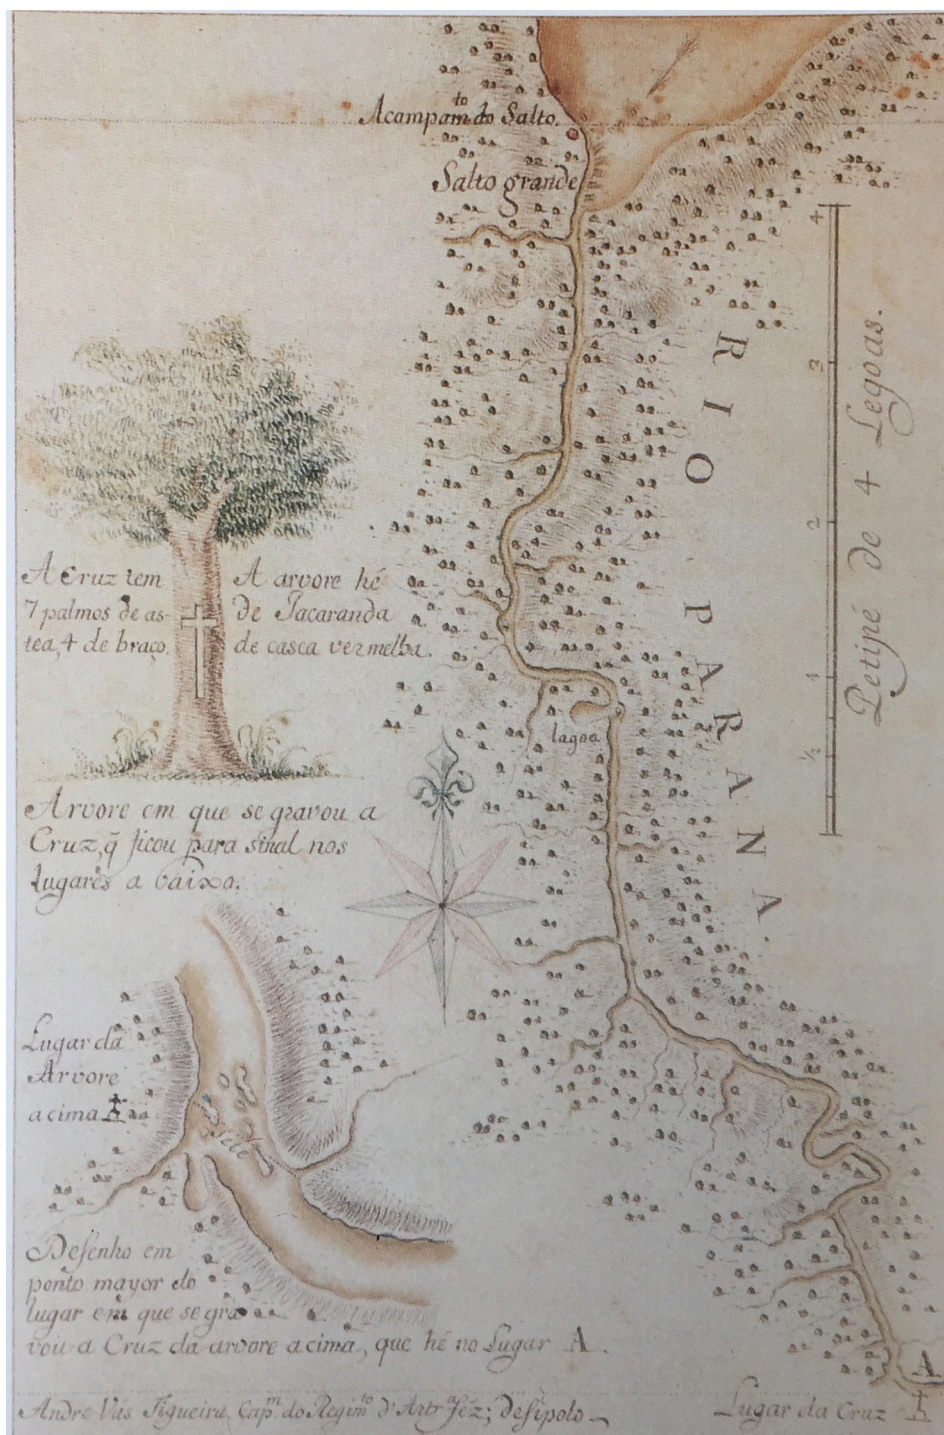 Acampam.to do Salto.
Salto grande
RIO PARANA.
4
3
2
1
½
Petipé de 4 Legoas.
A Cruz tem
7 palmos de as-
tea, 4 de braço.
A arvore hé
de Jacaranda
de casca vermelha.
lagoa
Arvore em que se gravou a
Cruz, q̃ ficou para sinal nos
lugares a baixo.
Lugar da
Arvore
acima
Desenho em
ponto mayor do
lugar em que se gra
vou a Cruz da arvore acima, que hé no Lugar A.
A
Lugar da Cruz
Andre Vas Figueira, Cap.m do Regim.to d'Artr.a féz;